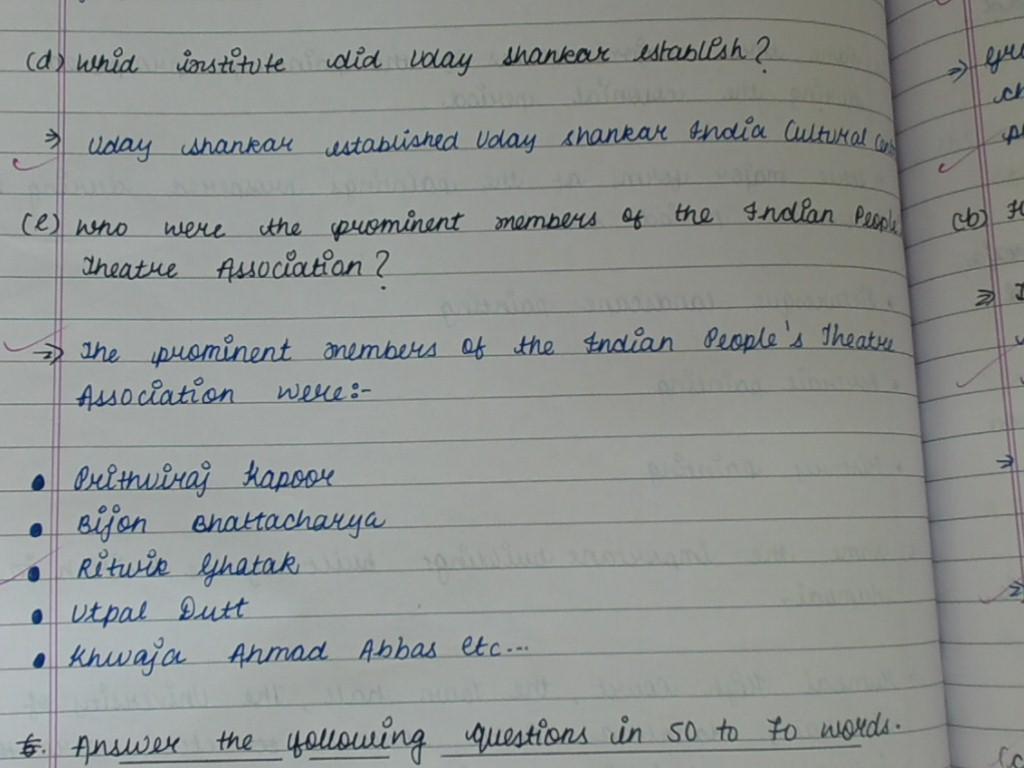 (d) Whid institute did Uday Shankar establish?
⇒ Uday Shankar established Uday Shankar India Cultural
(e) Who were the prominent members of the Indian People
Theatre Association?
⇒ The prominent members of the Indian People's Theatre
Association were:-
• Prithviraj Kapoor
• Bijon Bhattacharya
• Ritwik Ghatak
• Utpal Dutt
• Khwaja Ahmad Abbas etc...
5. Answer the following questions in 50 to 70 words.
(b)